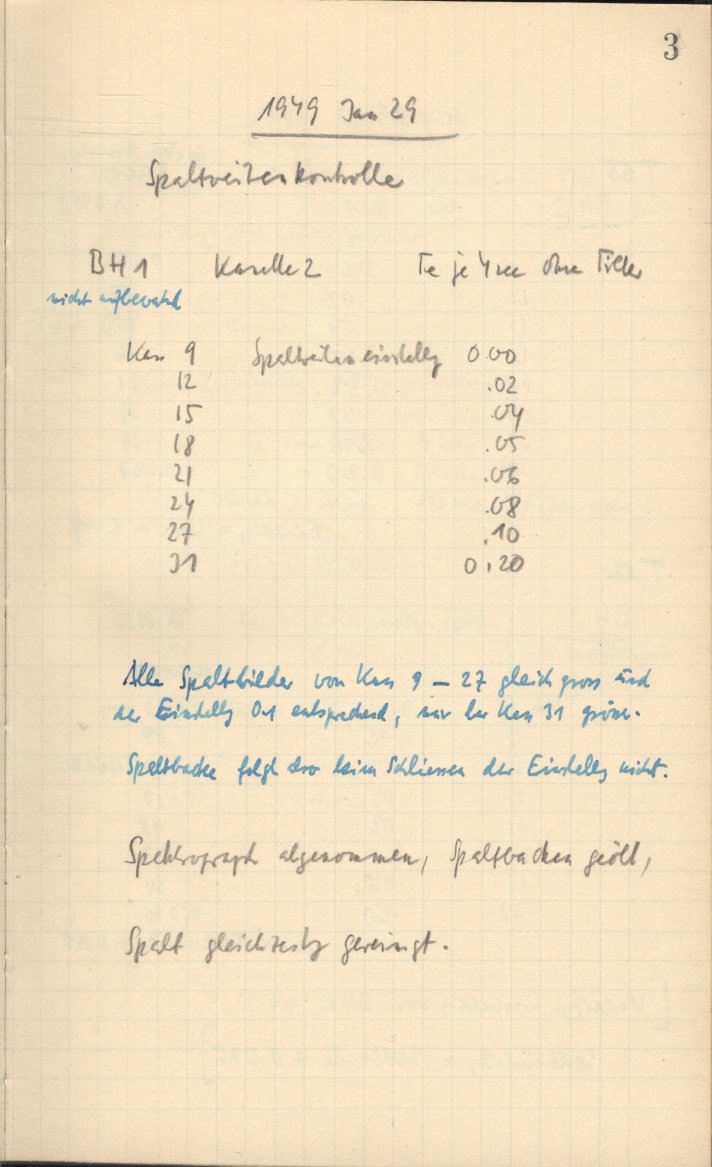 3
1949 Jan 29
Spaltweitenkontrolle
BH 1 Kassette 2 Te je 4 sec ohne Filter
nicht aufbewahrt
Kass 9 Spaltweiteneinstellg 0.00
12 .02
15 .04
18 .05
21 .06
24 .08
27 .10
31 0.20
Alle Spaltbilder von Kass 9 – 27 gleich gross und
der Einstellg 0.1 entsprechend, nur bei Kass 31 grösser.
Spaltbacke folgt also beim Schliessen der Einstellg nicht.
Spektrograph abgenommen, Spaltbacken geölt,
Spalt gleichzeitig gereinigt.